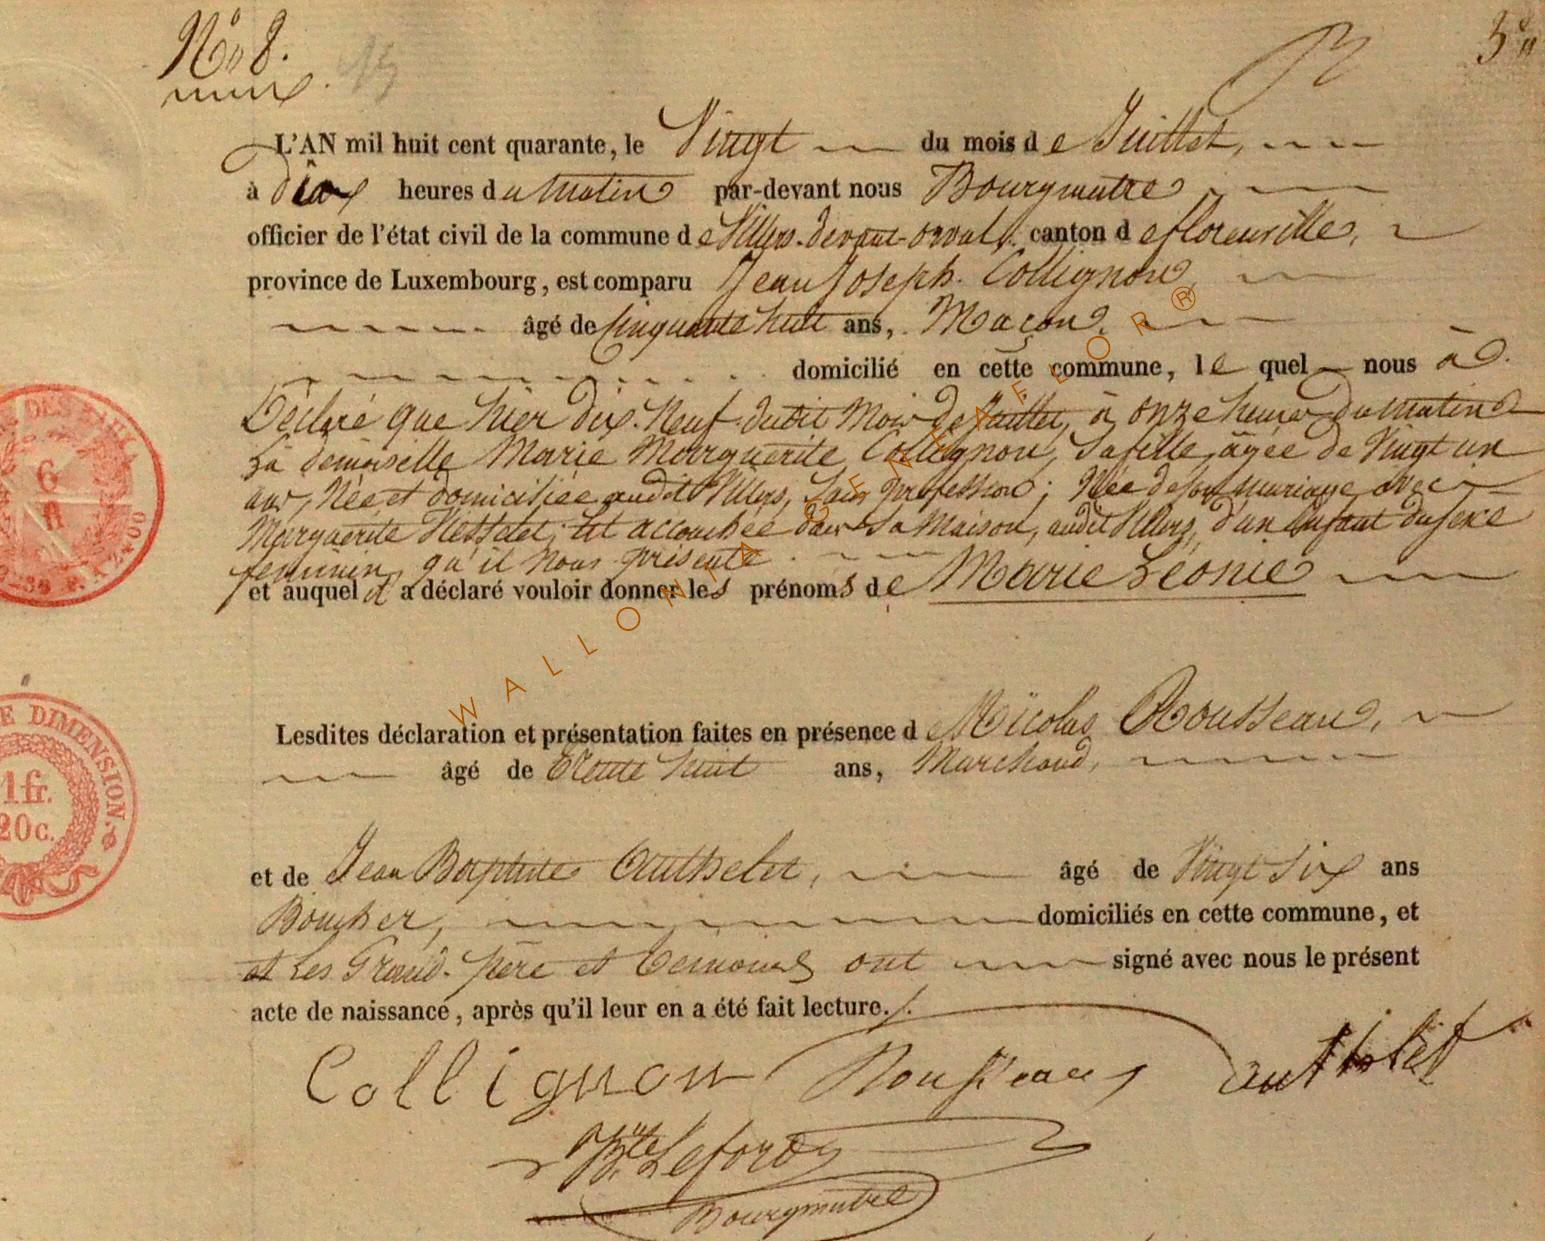 N° 8.
15
L'AN mil huit cent quarante, le Vingt du mois de Juillet,
à dix heures du Matin par-devant nous Bourgmestre
officier de l'état civil de la commune de Villers-devant-orval, canton de florenville,
province de Luxembourg, est comparu Jean Joseph Collignon,
âgé de Cinquante huit ans, Maçon,
domicilié en cette commune, le quel nous à
Déclaré que hier dix-Neuf dudit Mois de Juillet, à onze heures du matin
La demoiselle Marie Marguerite Collignon, Sa fille, âgée de Vingt un
ans, Née et domiciliée audit Villers, Sans profession; Née de son mariage avec
Marguerite Hesselet, Est accouchée dans Sa Maison, audit Villers, d'un Enfant du sexe
feminin, qu'il nous présente
et auquel il a déclaré vouloir donner les prénoms de Marie Léonie
Lesdites déclaration et présentation faites en présence de Nicolas Rousseau,
âgé de Trente huit ans, Marchand,
et de Jean Baptiste Authelet, âgé de Vingt Six ans
Boucher, domiciliés en cette commune, et
et Les Grand-père et Témoins ont signé avec nous le présent
acte de naissance, après qu'il leur en a été fait lecture.
Collignon Rousseau authelet
Bte Lefort
Bourgmestre
DIMENSION.
1fr.
20c.
WALLONIA GENEAFEOR®